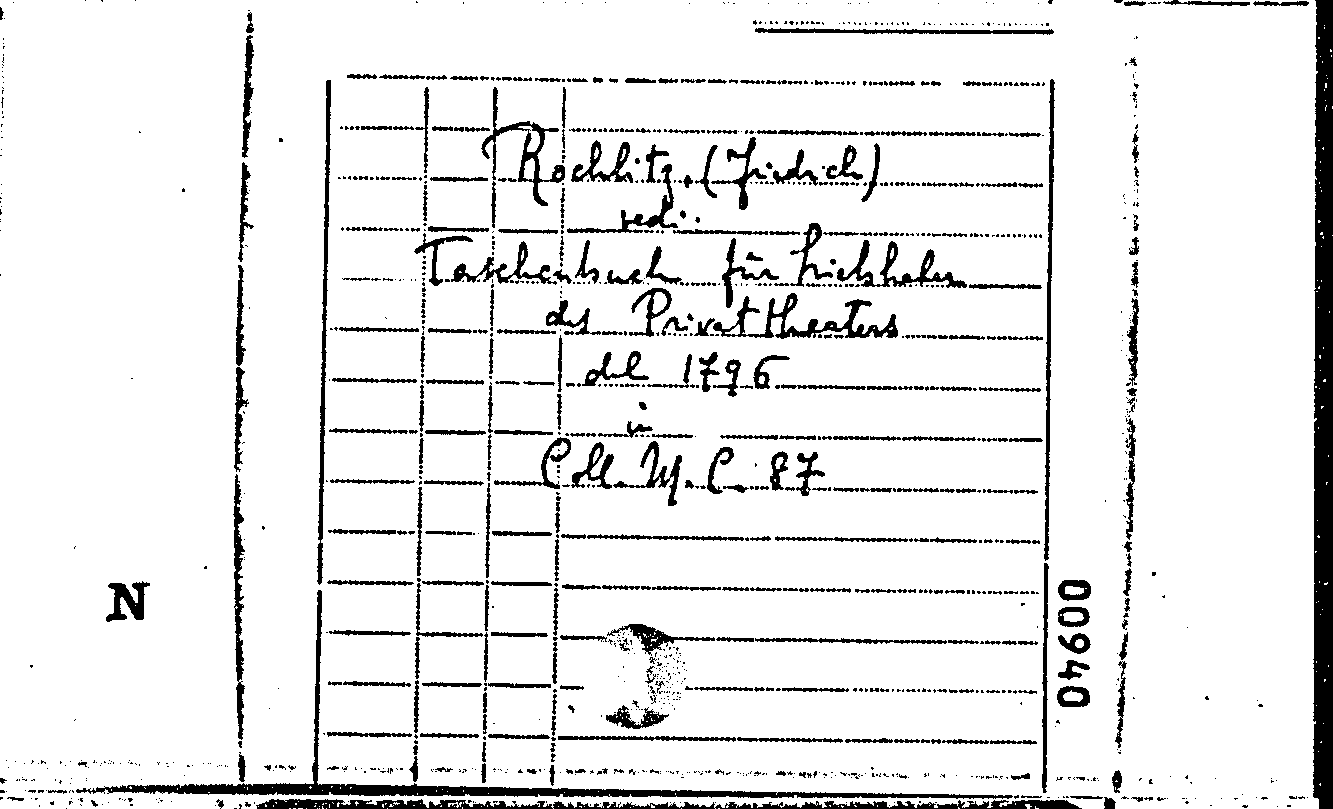 Rochlitz, (Friedrich)
vedi:
Taschenbuch für Liebhaber
des Privattheaters
del 1796
in
Coll. M. C. 87
N
00940